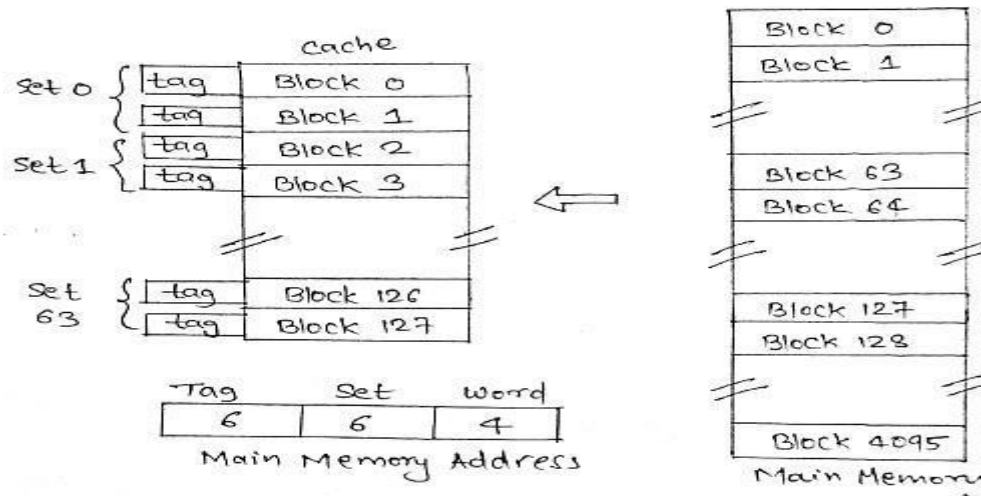 cache
set 0
tag Block 0
tag Block 1
set 1
tag Block 2
tag Block 3
set 63
tag Block 126
tag Block 127
Tag Set word
6 6 4
Main Memory Address
Block 0
Block 1
Block 63
Block 64
Block 127
Block 128
Block 4095
Main Memory